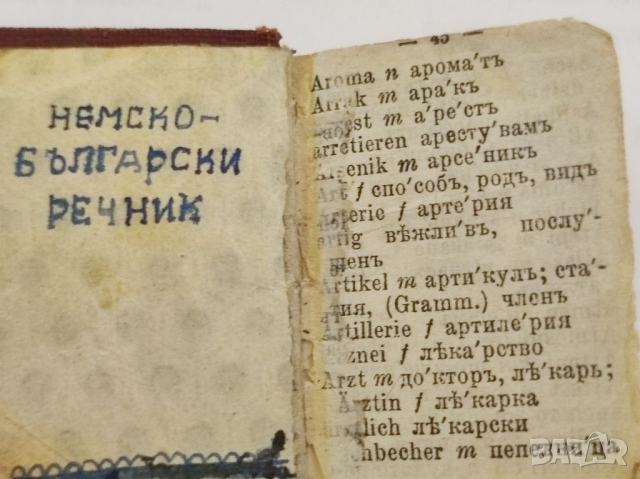 НЕМСКО-
БЪЛГАРСКИ
РЕЧНИК
— 45 —
Aroma n арома'тъ
Arrak m ара'къ
m а'ре'стъ
arretieren аресту'вамъ
Arsenik m арсе'никъ
Art f спо'собъ, родъ, видъ
Arterie f арте'рия
artig вѣжли'въ, послу'-
шенъ
Artikel m арти'кулъ; ста-
тия, (Gramm.) членъ
Artillerie f артиле'рия
Arznei f лѣка'рство
Arzt m до'кторъ, лѣ'карь;
Ärztin f лѣ'карка
ärztlich лѣ'карски
m пепелни'ца
bazar